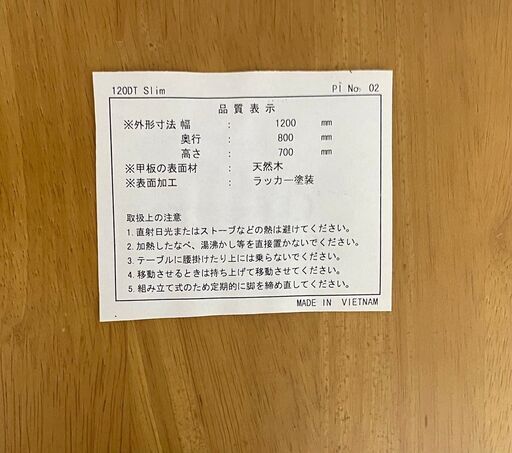 120DT Slim PI No. 02
品質表示
※外形寸法 幅 : 1200 mm
奥行 : 800 mm
高さ : 700 mm
※甲板の表面材 : 天然木
※表面加工 : ラッカー塗装
取扱上の注意
1. 直射日光またはストーブなどの熱は避けてください。
2. 加熱したなべ、湯沸かし等を直接置かないでください。
3. テーブルに腰掛けたり上には乗らないでください。
4. 移動させるときは持ち上げて移動させてください。
5. 組み立て式のため定期的に脚を締め直してください。
MADE IN VIETNAM